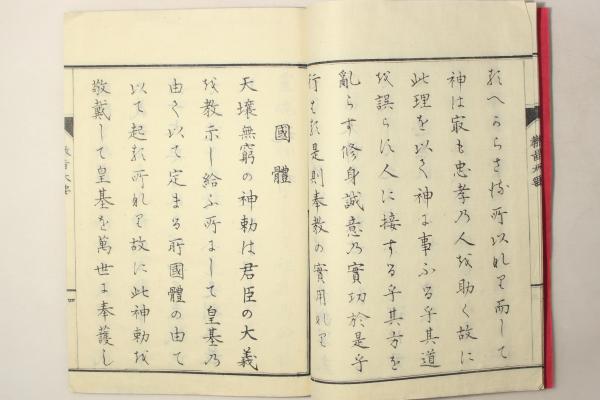 るへからさる所以なり而して
神は最も忠孝乃人を助く故に
此理を以く神に事ふる乎其道
を誤らす人に接する乎其方を
亂らす修身誠意乃實功於是乎
行はる是則奉教の實用なり
國體
天壤無窮の神勅は君臣の大義
を教示し給ふ所にして皇基乃
由く以て定まる所國體の由て
以て起る所なり故に此神勅を
敬戴して皇基を萬世に奉護し